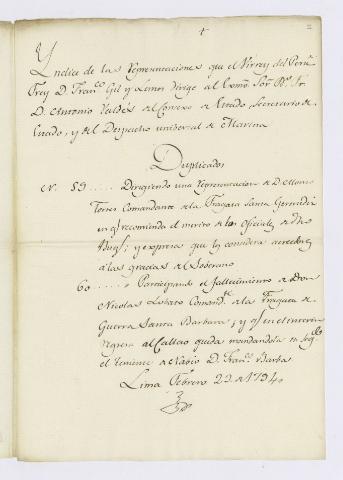 2
Yndice de las Representaciones que el Virrey del Perú
Frey D. Franco Gil y Lemos dirige al Exmo. Sor. Bo. Fr.
D. Antonio Valdés del Consexo de Estado, Secretario de
Estado, y del Despacho universal de Marina
Duplicados
N. 59..... Dirigiendo una Representacion de D. Alonso
Torres Comandante de la Fragata Santa Gertrudis
en q recomienda el merito de los oficiales de dho
Buq; y expresa que los considera acrehedores
a las gracias del Soberano
60..... Participando el fallecimiento de Don
Nicolas Lobato Comandte de la Fragata de
Guerra Santa Barbara; y q en el interin
regresa al Callao queda mandandola su Segdo
el Teniente de Navio D. Franco Barba
Lima Febrero 23 de 1794